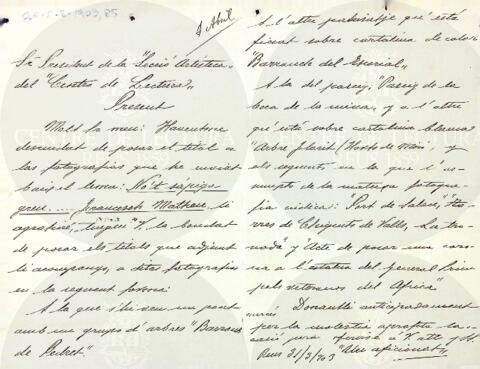 4 Abril
Sr President de la "Secció Artística"
del "Centro de Lectura"
Present
Molt Sr meu: Haventme
descuidat de posar el titol a
las fotografias que he enviat
baix el lema:
Francesch Matheu, li
agrahiré, tingui la bondat
de posar els titols que adjunt
li acompanyo, a ditas fotografias
en la seguent forma:
A la que s'hi veu un pont
amb un grupo d'arbres "Barranc
de Pedret."
A l'altre paisatje qu'está
fixat sobre cartulina de color
"Barranch del Escorial"
A la del passeig, "Passeig de la
boca de la mina", y a l'altre
qu'está sobre cartulina blanca
"Arbre florit", y
els seguents en la que l'as-
sumpto de la mateixa fotogra-
fia indica: "Port de Salou", "Xi-
quets de Valls,
y Acte de posar una coro-
na a l'estatua del general Prim
pels veterans del Africa"
Donantli anticipadament
gracias
per la molestia aprofita la o-
casió para oferirse a V. att. y S.S.
Reus 31/3/903 "Un aficionat"